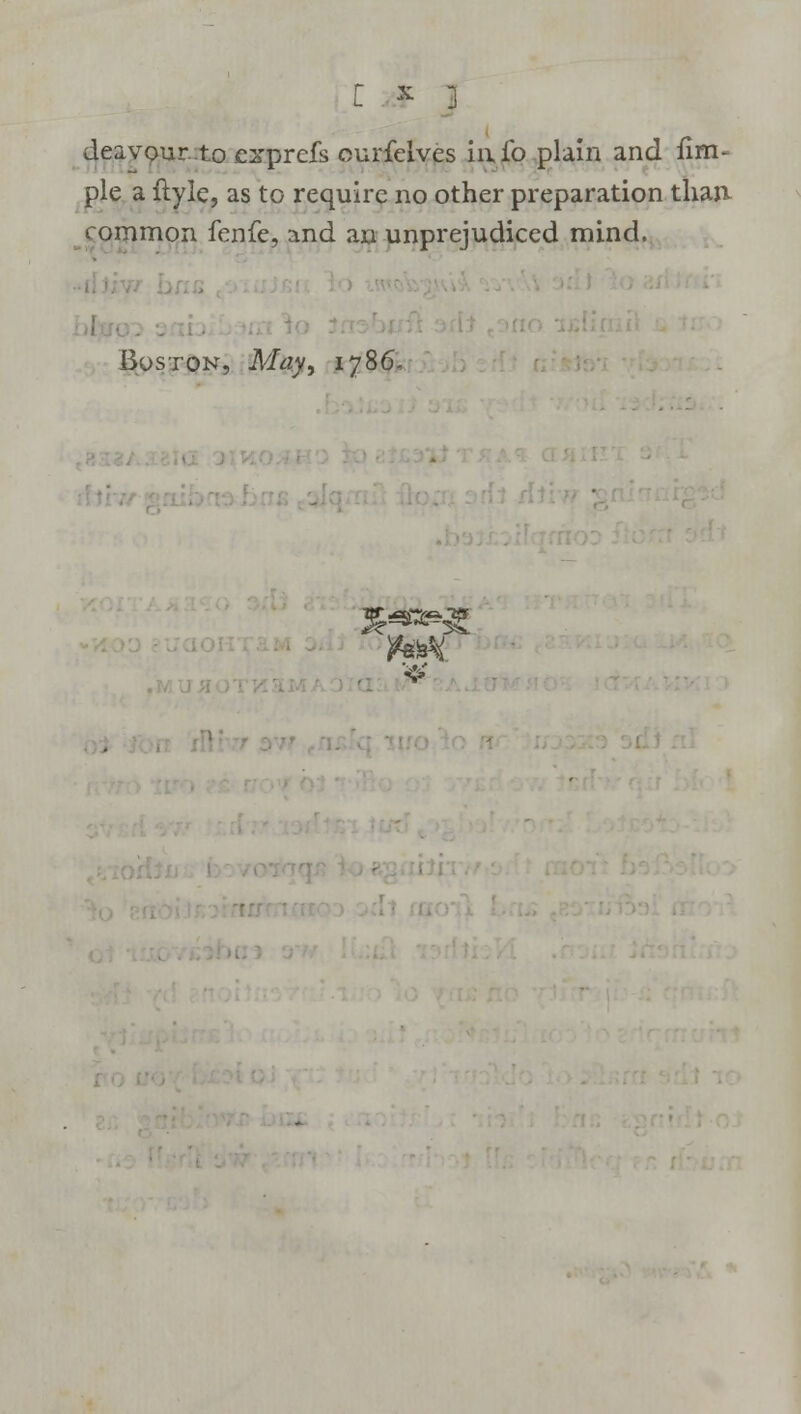 [ x ]
deavour to expreſs ourſelves in ſo plain and ſim-
ple a ſtyle, as to require no other preparation than
common ſenſe, and an unprejudiced mind.
BOSTON, May, 1786.